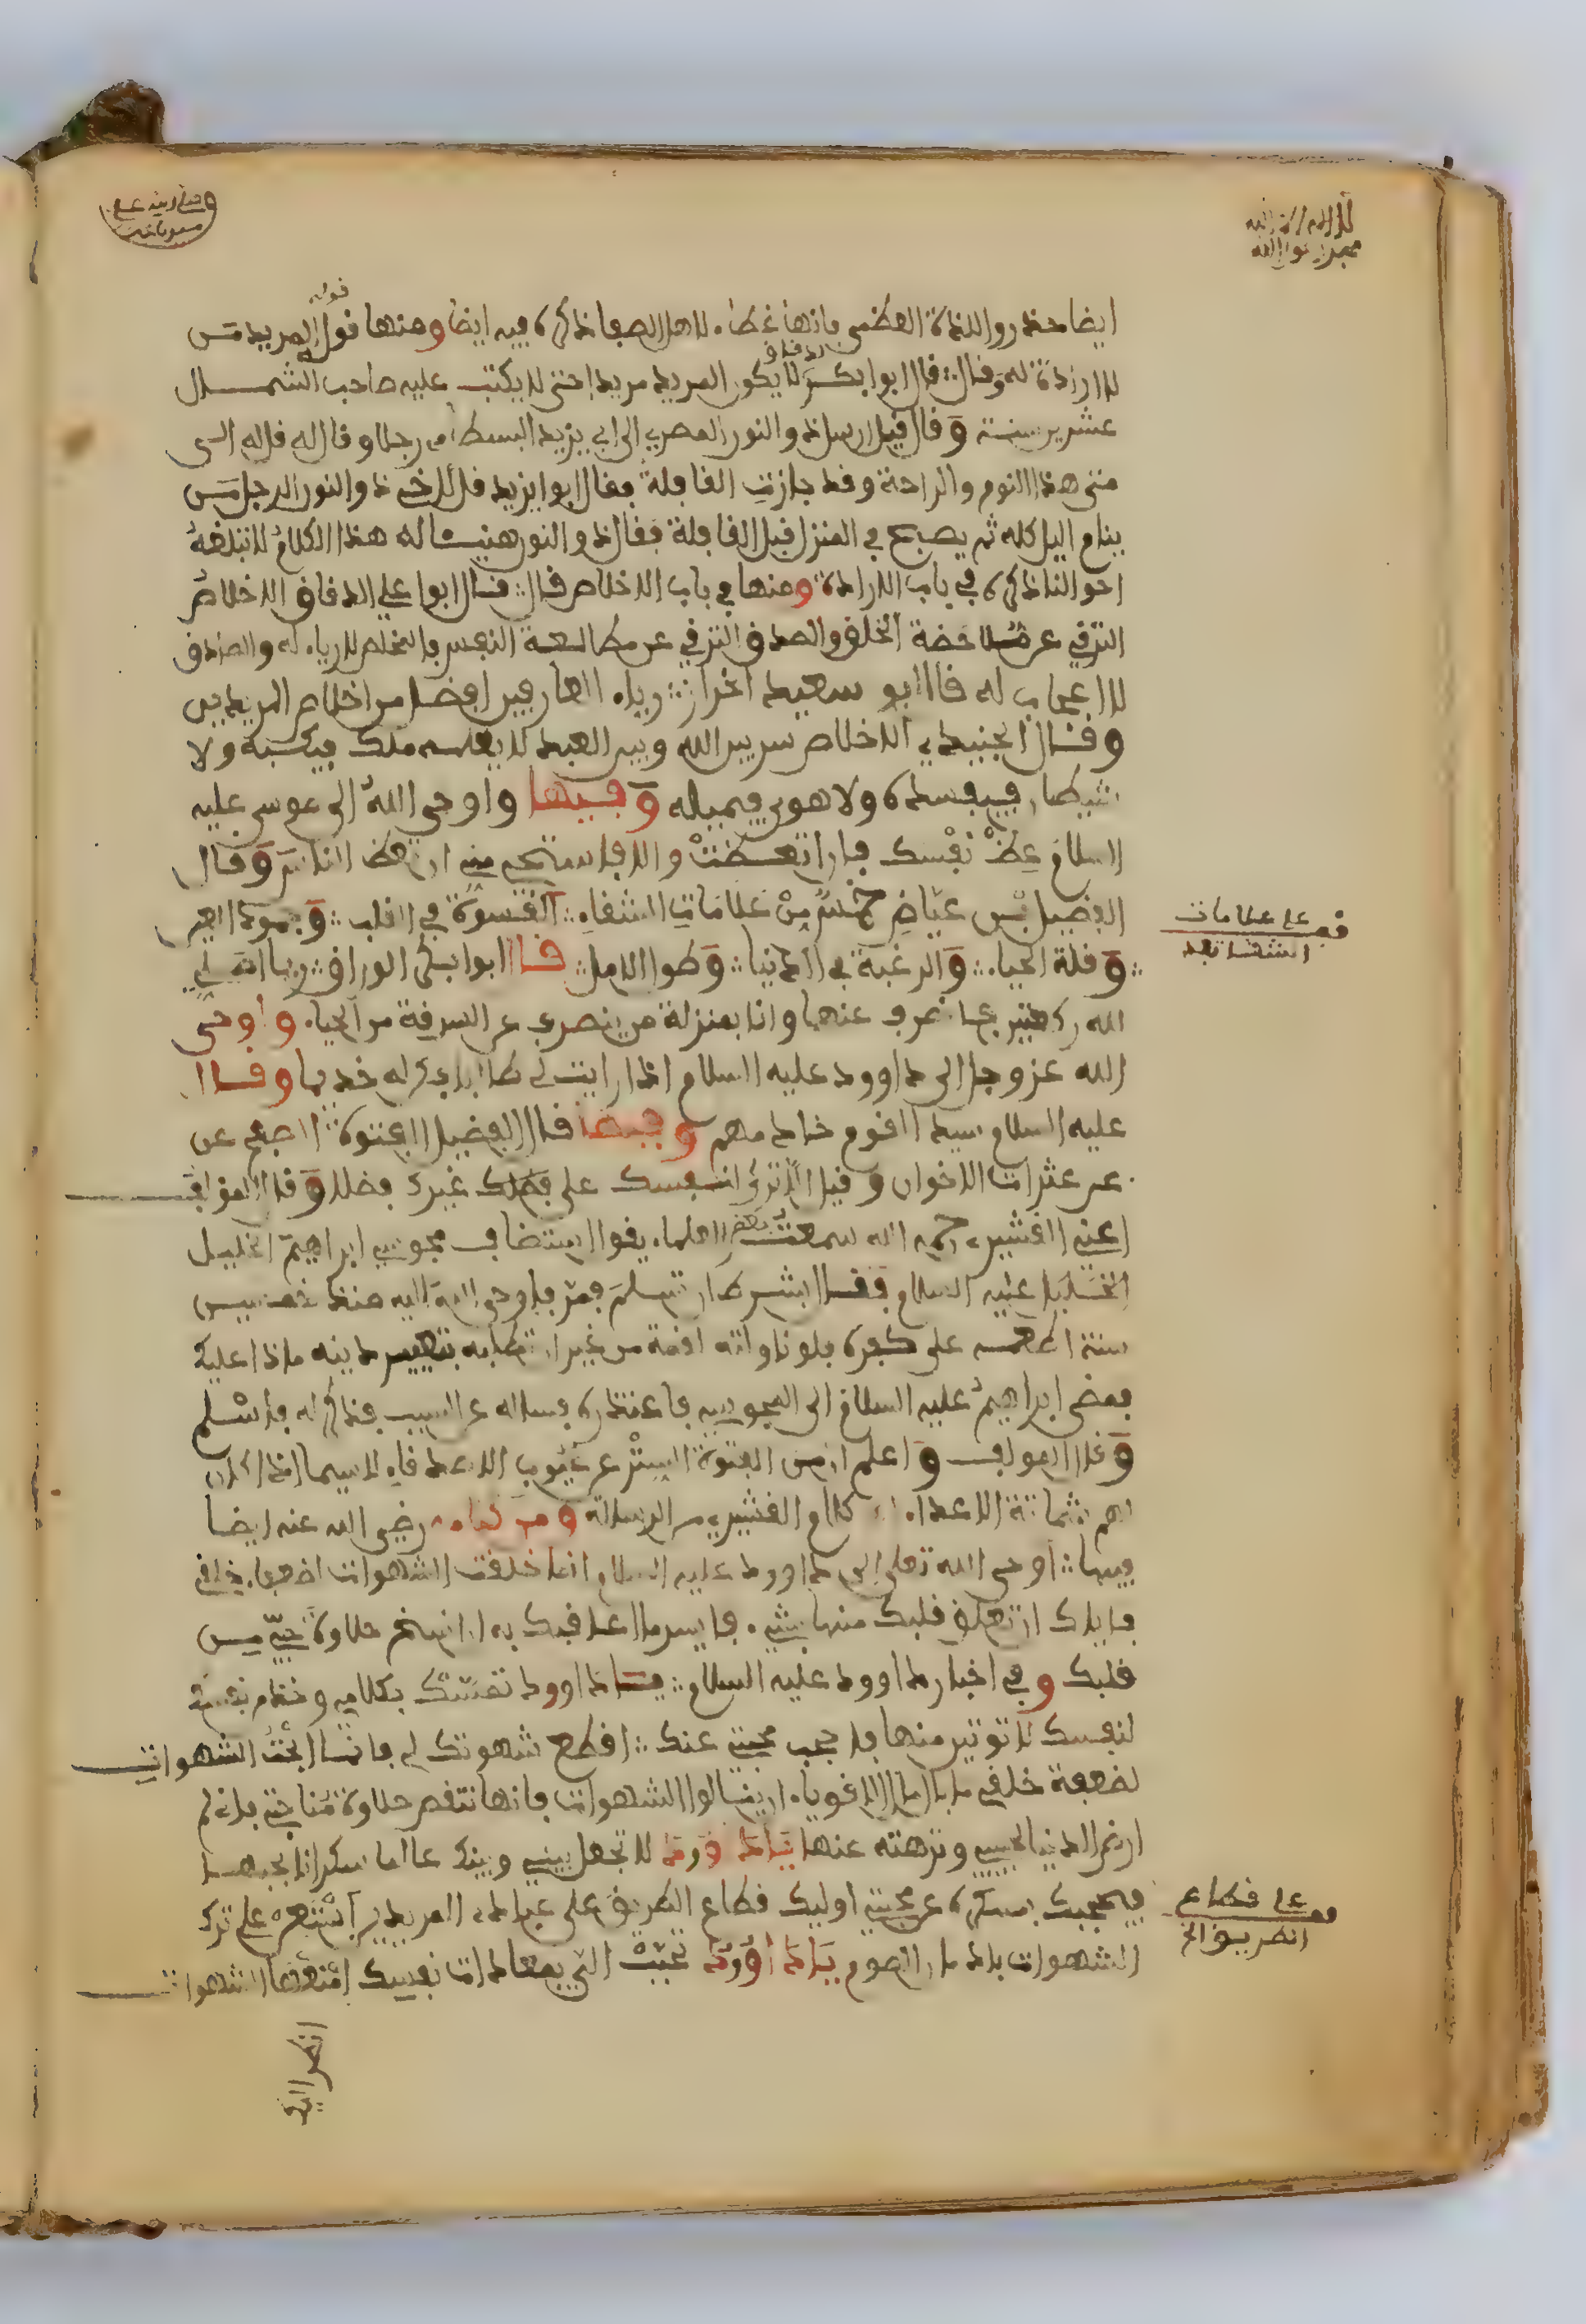 ايضا حذروا لذة العظمى فانها غطاء لاهل الصفا ذكره فيه ايضا ومنها قول المريد من
لا ارادة له وقال قال ابوا بكر لا يكون المريد مريدا حتى لا يكتب عليه صاحب الشمال
عشرين سنة وقال قيل ارسل ذو النور المصري الى ابي يزيد البسطامي رجلا وقال له قل له الى
متى هذا النوم والراحة وقد جازت القافلة فقال ابوا يزيد قل لاخي ذو النور الرجل من
ينام اليل كله ثم يصبح في المنزل قبل القافلة فقال ذو النور هنيئا له هذا الكلام لا تبلغه
احوالنا ذكره في باب الارادة ومنها في باب الاخلاص قال قال ابوا علي الدقاق الاخلاص
التوقي عن ملاحظة الخلق والصدق التوقي عن مطالعة النفس فالمخلص لا رياء له والصادق
لا اعجاب له قال ابو سعيد الخراز رياء العارفين افضل من اخلاص المريدين
وقال الجنيد الاخلاص سر بين الله وبين العبد لا يعلمه ملك فيكتبه ولا
شيطان فيفسده ولا هوى فيميله وفيها واوحى الله الى عيسى عليه
السلام عظ نفسك فان اتعظت والا فاستحي مني ان تعظ الناس وقال
الفضيل بن عياض خمس من علامات الشقاء القسوة في القلب وجمود العين
وقلة الحياء والرغبة في الدنيا وطول الامل قال ابوا بكر الوراق ربما اصلي
الله ركعتين فانصرف عنهما وانا بمنزلة من ينصرف عن السرقة من الحياء واوحى
الله عز وجل الى داوود عليه السلام اذا رايت لي طالبا فكن له خديما وقال
عليه السلام سيد القوم خادمهم وفيها قال الفضيل الفتوة الصفح عن
عن عثرات الاخوان وقيل الا ترى لنفسك على غيرك فضلا وقال المؤلف
اعني القشيري رحمه الله سمعت بعض العلماء يقول استضاف مجوسي ابراهيم الخليل
الخليل عليه السلام فقال بشرط ان تسلم فمر فاوحى الله اليه منذ خمسين
سنة اطعمه على كفره فلو ناولته لقمة من غير ان تطالبه بتغيير دينه ماذا عليك
فمضى ابراهيم عليه السلام الى المجوسي فاعتذره فسأله عن السبب فذكر له فاسلم
وقال المولف واعلم ان من الفتوة الستر عن عيوب الاصدقاء لاسيما اذا كان
لهم شماتة الاعداء كلام القشيري من الرسالة ومن كلامه رضي الله عنه ايضا
فيها اوحى الله تعلى الى داوود عليه السلام انما خلقت الشهوات لضعفاء خلقي
فاياك ان تعلق قلبك منها بشيء فايسر ما اعاقبك به ان انسخ حلاوة حبي من
قلبك وفي اخبار داوود عليه السلام يا داوود تمسك بكلامي وخذ من نفسك
لنفسك لا توتين منها فاحجب محبتي عنك اقطع شهوتك لي فانما ابحت الشهوات
لضعفة خلقي ما بال الاقوياء ان ينالوا الشهوات فانها تنقص حلاوة مناجاتي فاني لم
ارض الدنيا لحبيبي ونزهته عنها يا داوود لا تجعل بيني وبينك عالما سكرانا بحبها
فيحجبك بسكره عن محبتي اوليك قطاع الطريق على عبادي المريدين استعن على ترك
الشهوات بادمان الصوم يا داوود تحبب الي بمعادات نفسك امنعها الشهوات
قف على علامات
الشقا
قف على قطاع
الطريق الخ